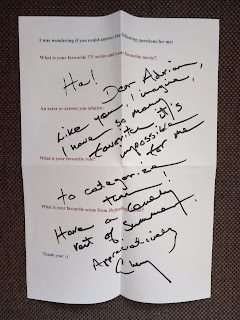 I was wondering if you could answer the following questions for me:
What is your favourite TV series and your favourite movie?
Ha! Dear Adrian,
Like you, I imagine,
An actor or actress you admire:
I have so many
favorites it's
impossible
What is your favourite role?
for me
to categorize
them!
What is your favourite scene from
Have a lovely
rest of summer.
Appreciatively
Thank you! :)